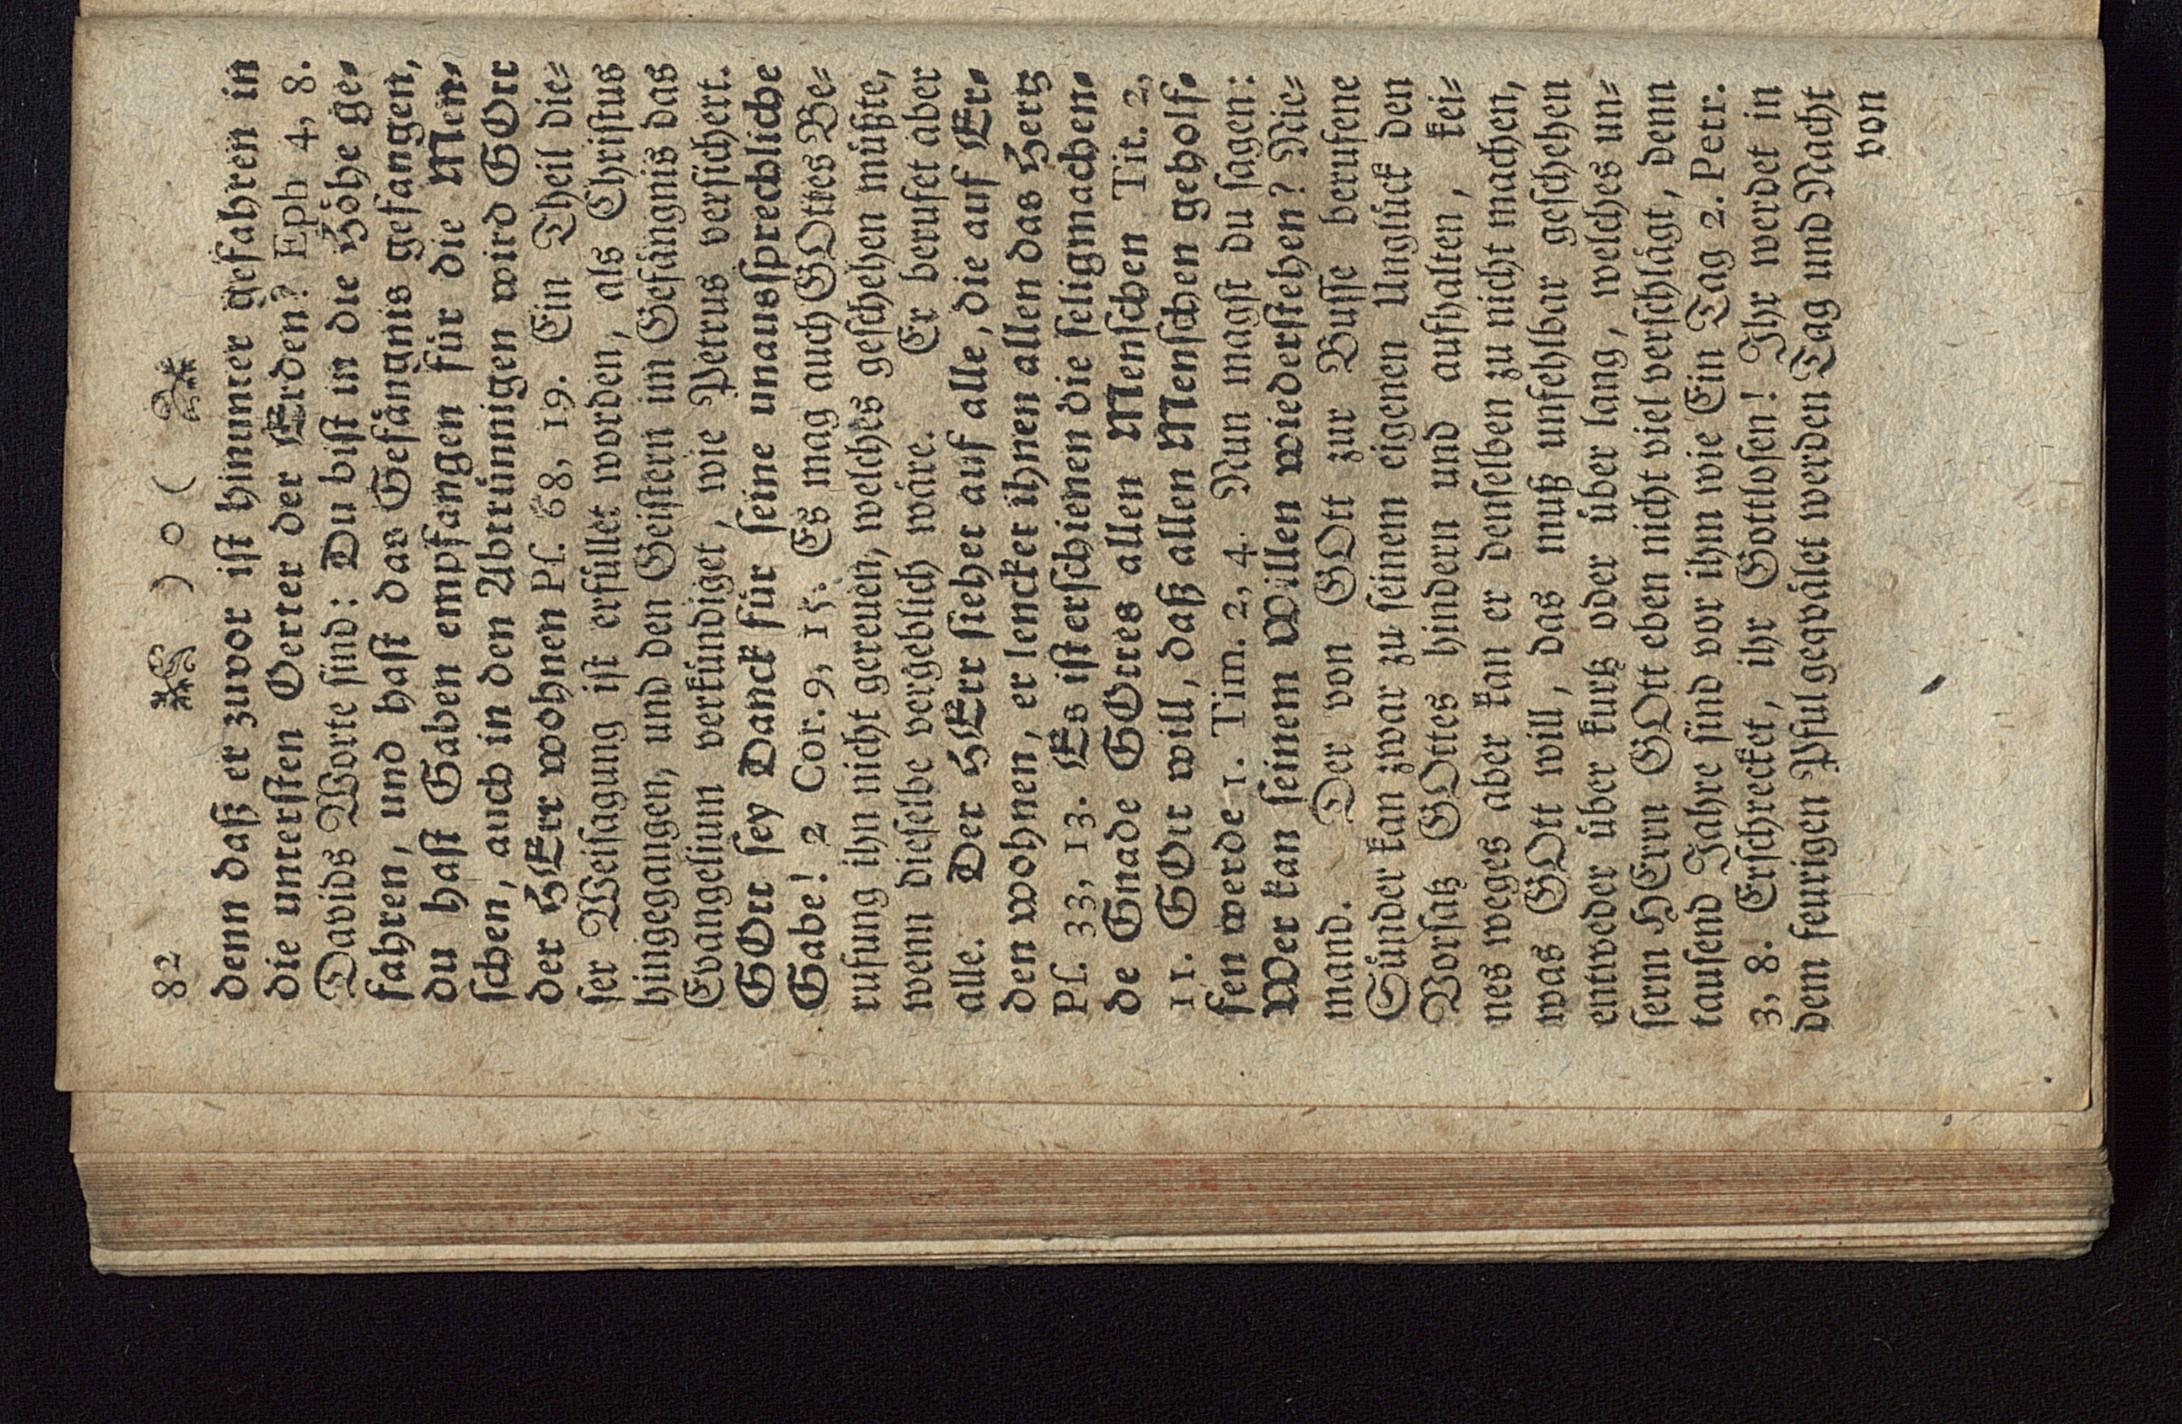 82 ) o (
denn daß er zuvor ist hinunter gefahren in
die untersten Oerter der Erden? Eph 4, 8.
Davids Worte sind: Du bist in die Höhe ge-
fahren, und hast das Gefängnis gefangen,
du hast Gaben empfangen für die Men-
schen, auch in den Abtrünnigen wird GOtt
der HErr wohnen Ps. 68, 19. Ein Theil die-
ser Weisagung ist erfüllet worden, als Christus
hingegangen, und den Geistern im Gefängnis das
Evangelium verkündiget, wie Petrus versichert.
GOtt sey Danck für seine unaussprechliche
Gabe! 2 Cor. 9, 15. Es mag auch GOttes Be-
rufung ihn nicht gereuen, welches geschehen müßte,
wenn dieselbe vergeblich wäre. Er berufet aber
alle. Der HErr siehet auf alle, die auf Er-
den wohnen, er lencket ihnen allen das Hertz
Ps. 33, 13. Es ist erschienen die seligmachen-
de Gnade GOttes allen Menschen Tit. 2,
11. GOtt will, daß allen Menschen geholf-
fen werde 1. Tim. 2, 4. Nun magst du sagen:
Wer kan seinem Willen wiederstehen? Nie-
mand. Der von GOtt zur Busse berufene
Sünder kan zwar zu seinem eigenen Unglück den
Vorsatz GOttes hindern und aufhalten, kei-
nes weges aber kan er denselben zu nicht machen,
was GOtt will, das muß unfehlbar geschehen
entweder über kurtz oder über lang, welches un-
serm HErrn GOtt eben nicht viel verschlägt, denn
tausend Jahre sind vor ihm wie Ein Tag 2. Petr.
3, 8. Erschrecket, ihr Gottlosen! Ihr werdet in
dem feurigen Pful geqvälet werden Tag und Nacht
von